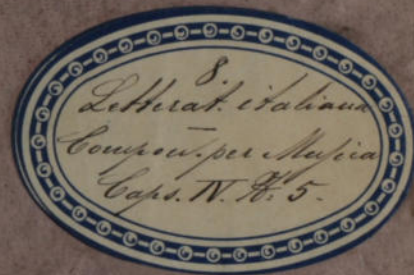 8.
Letterat. italiana
Compon. per Musica
Caps. IV. N. 5.